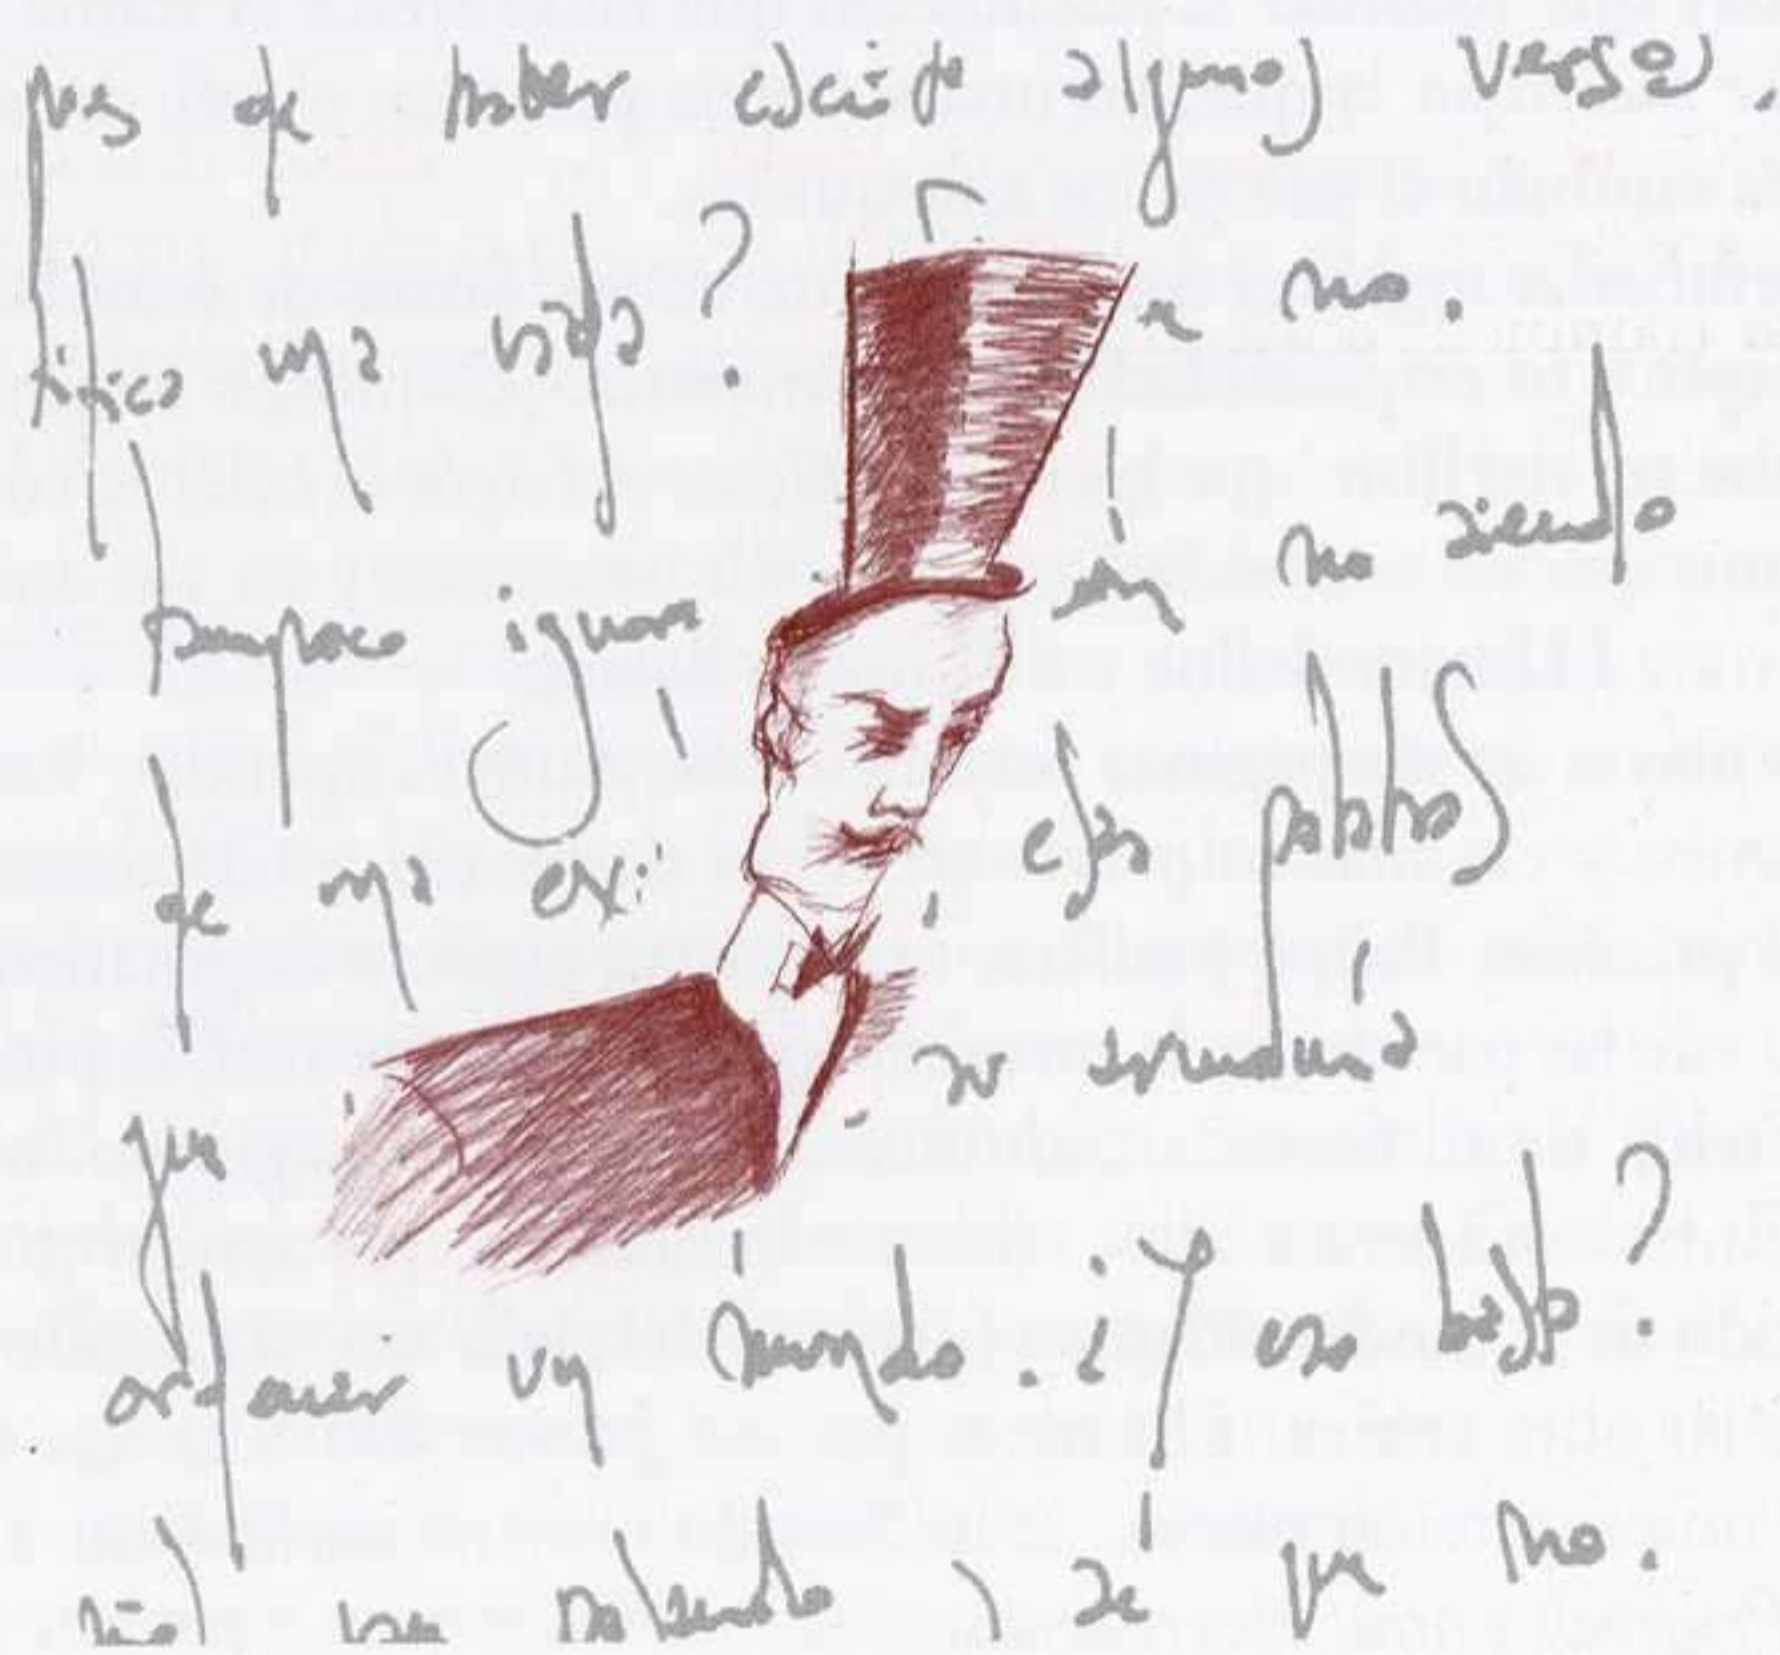 pues de haber escrito algunos versos,
tifica una vida? que no.
tampoco ignoro aún no siendo
de una exi , esas palabras
que se
ordenar un mundo. ¿Y eso basta?
sé que no.